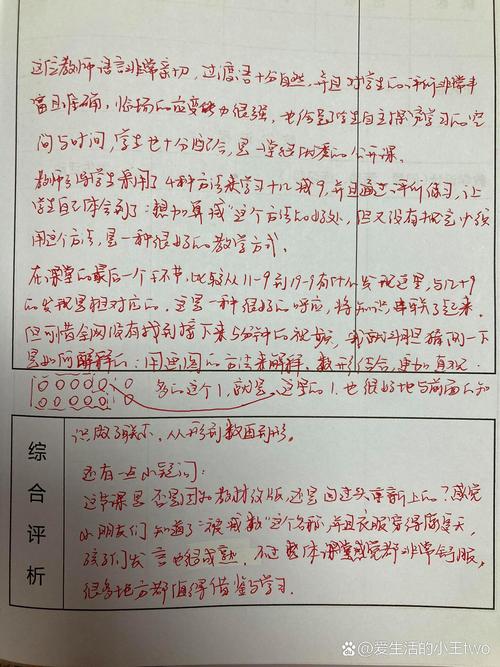 这位教师语言非常亲切，过渡语十分自然，并且对学生的评价非常丰
富且准确，临场的应变能力很强，也给足了学生自主探究学习的空
间与时间，学生也十分配合，是一堂很的公开课。
教师引导学生采用了4种方法来学习十几减9，并且通过评价练习，让
学生自己体会到了："想加算减"这个方法的好处，但又没有规定必须
用这个方法，是一种很好的教学方式。
在课堂的最后一个环节，比较从11-9到19-9有什么发现这里，与几+9
的发现是相对应的，这是一种很好的呼应，将知识串联了起来。
但可惜全网没有找到接下来5分钟的视频，我斗胆猜测一下
是如何解释的：用画图的方法来解释，数形结合，更加直观
多的这个1，就是这里的1.也很好地与前面的知
识做了联系，从形到数再到形。
综合评析
还有一点小疑问：
这节课是否是因为教材改版，还是因为过头重新上的？感觉
小朋友们知道了"被减数"这个名称，并且衣服穿得像夏天，
孩子们发言也很成熟。不过整体课堂感觉都非常舒服，
很多地方都值得借鉴与学习.
Baidu百度 @爱生活的小王two